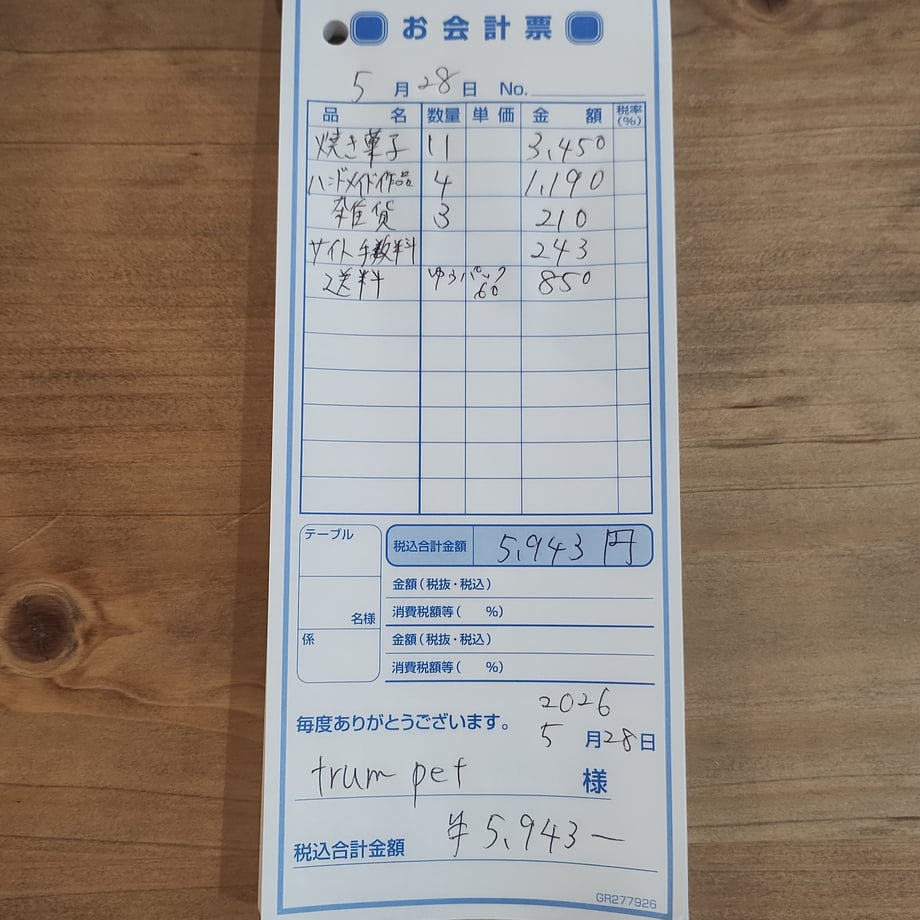 お会計票
5月28日 No.
品名 数量 単価 金額 税率(%)
焼き菓子 11 3,450
ハンドメイド作品 4 1,190
雑貨 3 210
サイト手数料 243
送料 ゆうパック60 850
テーブル
税込合計金額 5,943円
金額(税抜・税込)
名様
消費税額等( %)
係
金額(税抜・税込)
消費税額等( %)
2026
毎度ありがとうございます。 5月28日
trumpet 様
税込合計金額 ¥5,943ー
GR277926